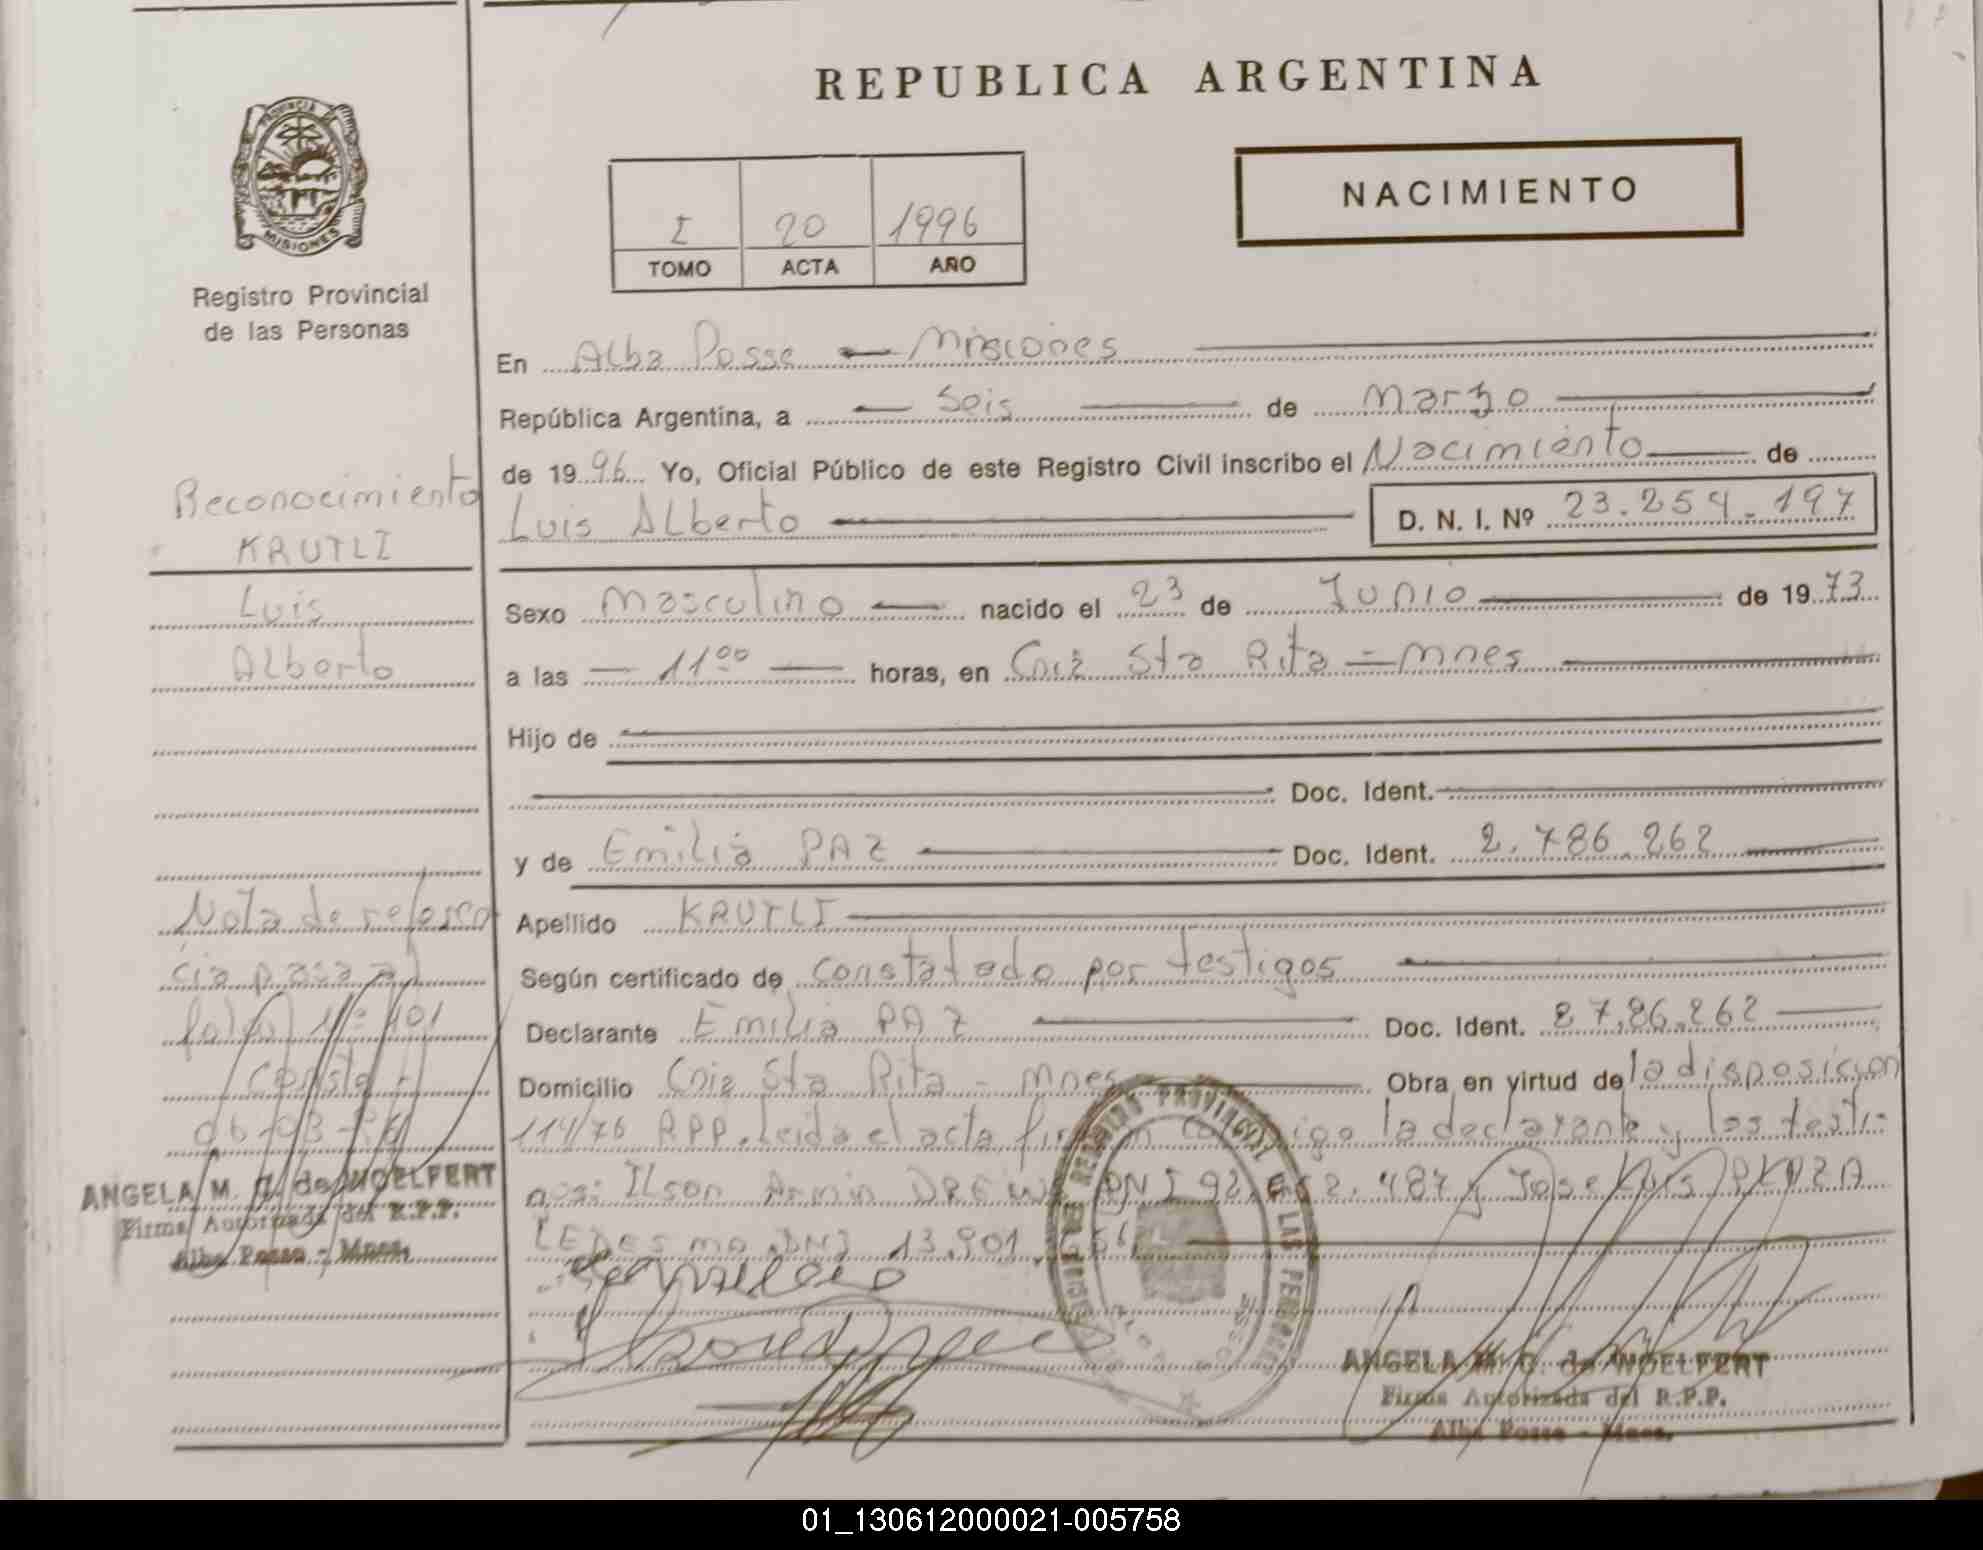 REPUBLICA ARGENTINA
PROVINCIA
MISIONES
Registro Provincial
de las Personas
I 20 1996
TOMO ACTA AÑO
NACIMIENTO
En Alba Posse — Misiones
República Argentina, a — Seis — de Marzo
de 1996 Yo, Oficial Público de este Registro Civil inscribo el Nacimiento — de
Luis Alberto — D. N. I. Nº 23.254.197
Sexo Masculino — nacido el 23 de Junio — de 1973
a las — 11⁰⁰ — horas, en Cnia Sta Rita = Mnes
Hijo de
Doc. Ident.
y de Emilia PAZ — Doc. Ident. 2.786.262
Apellido KRUTLI
Según certificado de constatado por testigos
Declarante Emilia PAZ — Doc. Ident. 2786.262
Domicilio Cnia Sta Rita - Mnes — Obra en virtud de la disposición
114/76 RPP. Leida el acta, firman conmigo la declarante y los testi-
gos: Ilson Armin DNI 92. 487 y Jose Luis
LEDESMA DNI 13.901.
REGISTRO PROVINCIAL DE LAS PERSONAS
ALBA POSSE
ANGELA M. G. de WOELFERT
Firma Autorizada del R.P.P.
Alba Posse - Mnes.
Reconocimiento
KRUTLI
Luis
Alberto
Nota de referen
cia pasa al
folio Nº 101
Conste -
06-03-96
ANGELA M. G. de WOELFERT
Firma Autorizada del R.P.P.
Alba Posse - Mnes.
01_130612000021-005758